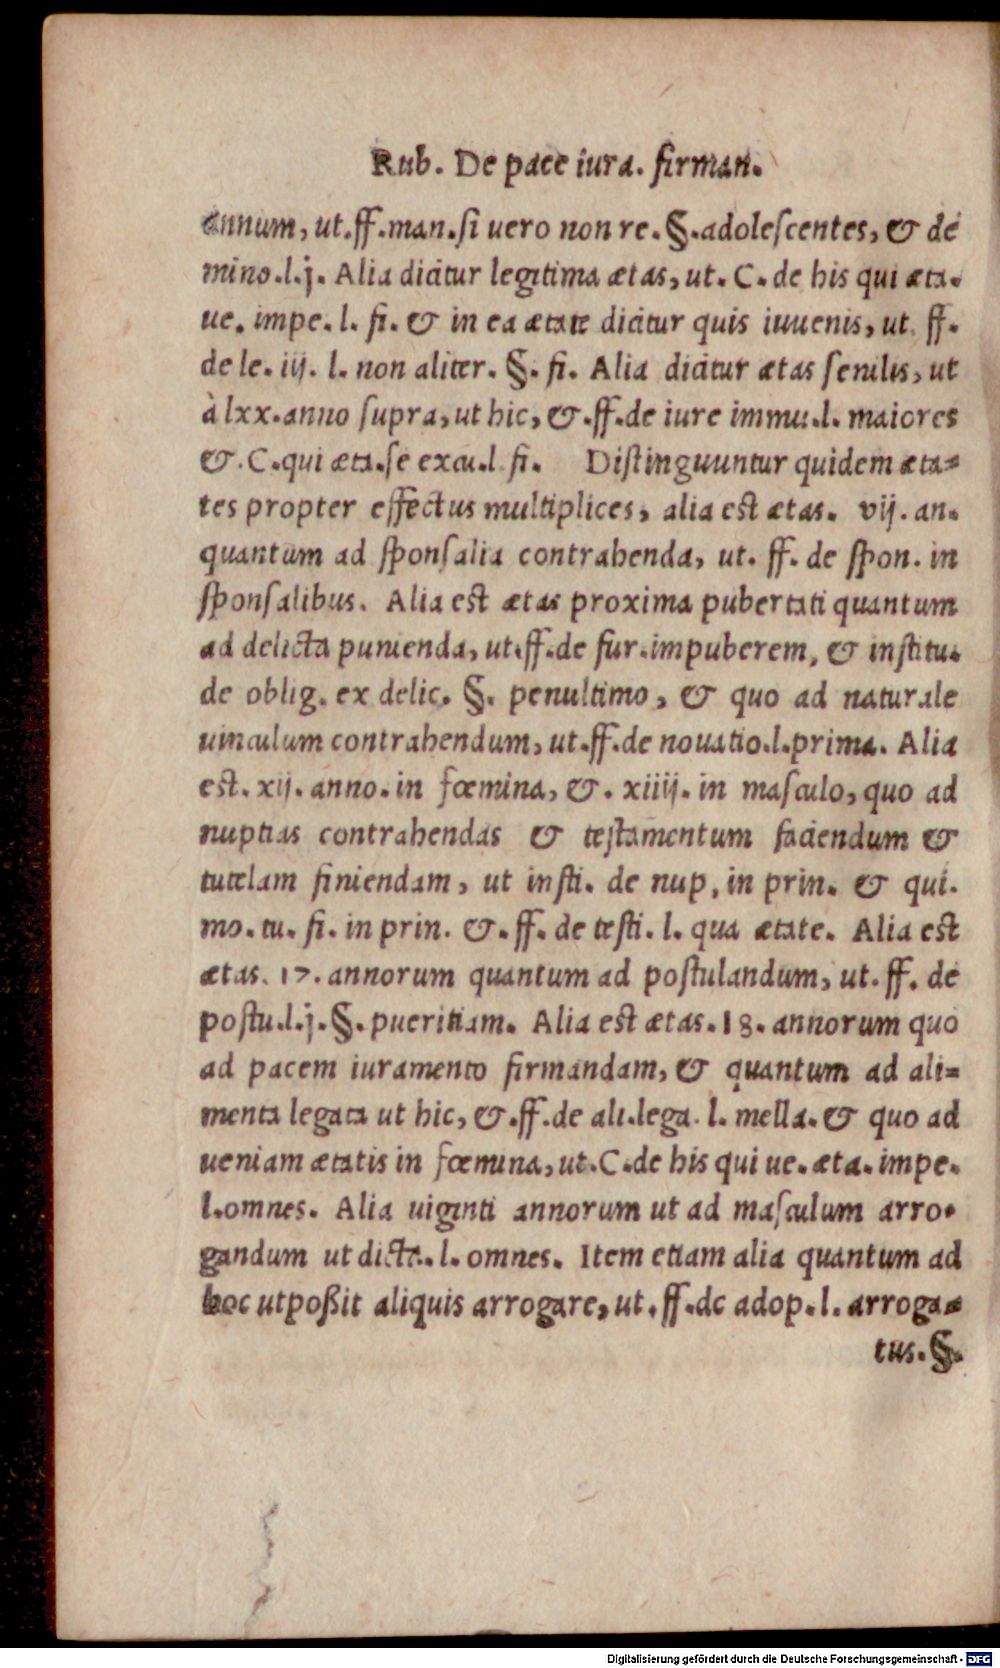 Rub. De pace iura. firman.
annum, ut.ff.man.si uero non re.§.adolescentes, & de
mino.l.j. Alia dicitur legitima ætas, ut. C. de his qui æta.
ue. impe. l. fi. & in ea ætate dicitur quis iuuenis, ut ff.
de le. iij. l. non aliter. §. fi. Alia dicitur ætas senilis, ut
à lxx.anno supra, ut hic, &.ff.de iure immu.l. maiores
&. C.qui æta.se excu.l fi. Distinguuntur quidem æta=
tes propter effectus multiplices, alia est ætas. vij. an.
quantum ad sponsalia contrahenda, ut. ff. de spon. in
sponsalibus. Alia est ætas proxima pubertati quantum
ad delicta punienda, ut.ff.de fur.impuberem, & institu.
de oblig. ex delic. §. penultimo, & quo ad naturale
uinculum contrahendum, ut.ff.de nouatio.l.prima. Alia
est. xij. anno. in fœmina, &. xiiij. in masculo, quo ad
nuptias contrahendas & testamentum faciendum &
tutelam finiendam, ut insti. de nup. in prin. & qui.
mo. tu. fi. in prin. &. ff. de testi. l. qua ætate. Alia est
ætas. 17. annorum quantum ad postulandum, ut. ff. de
postu.l.j.§.pueritiam. Alia est ætas.18. annorum quo
ad pacem iuramento firmandam, & quantum ad ali=
menta legata ut hic, &.ff.de ali.lega. l. mella. & quo ad
ueniam ætatis in fœmina, ut.C.de his qui ue. æta. impe.
l.omnes. Alia uiginti annorum ut ad masculum arro.
gandum ut dicta.l. omnes. Item etiam alia quantum ad
hoc ut poßit aliquis arrogare, ut. ff.de adop.l. arroga=
tus.§.
Digitalisierung gefördert durch die Deutsche Forschungsgemeinschaft - DFG